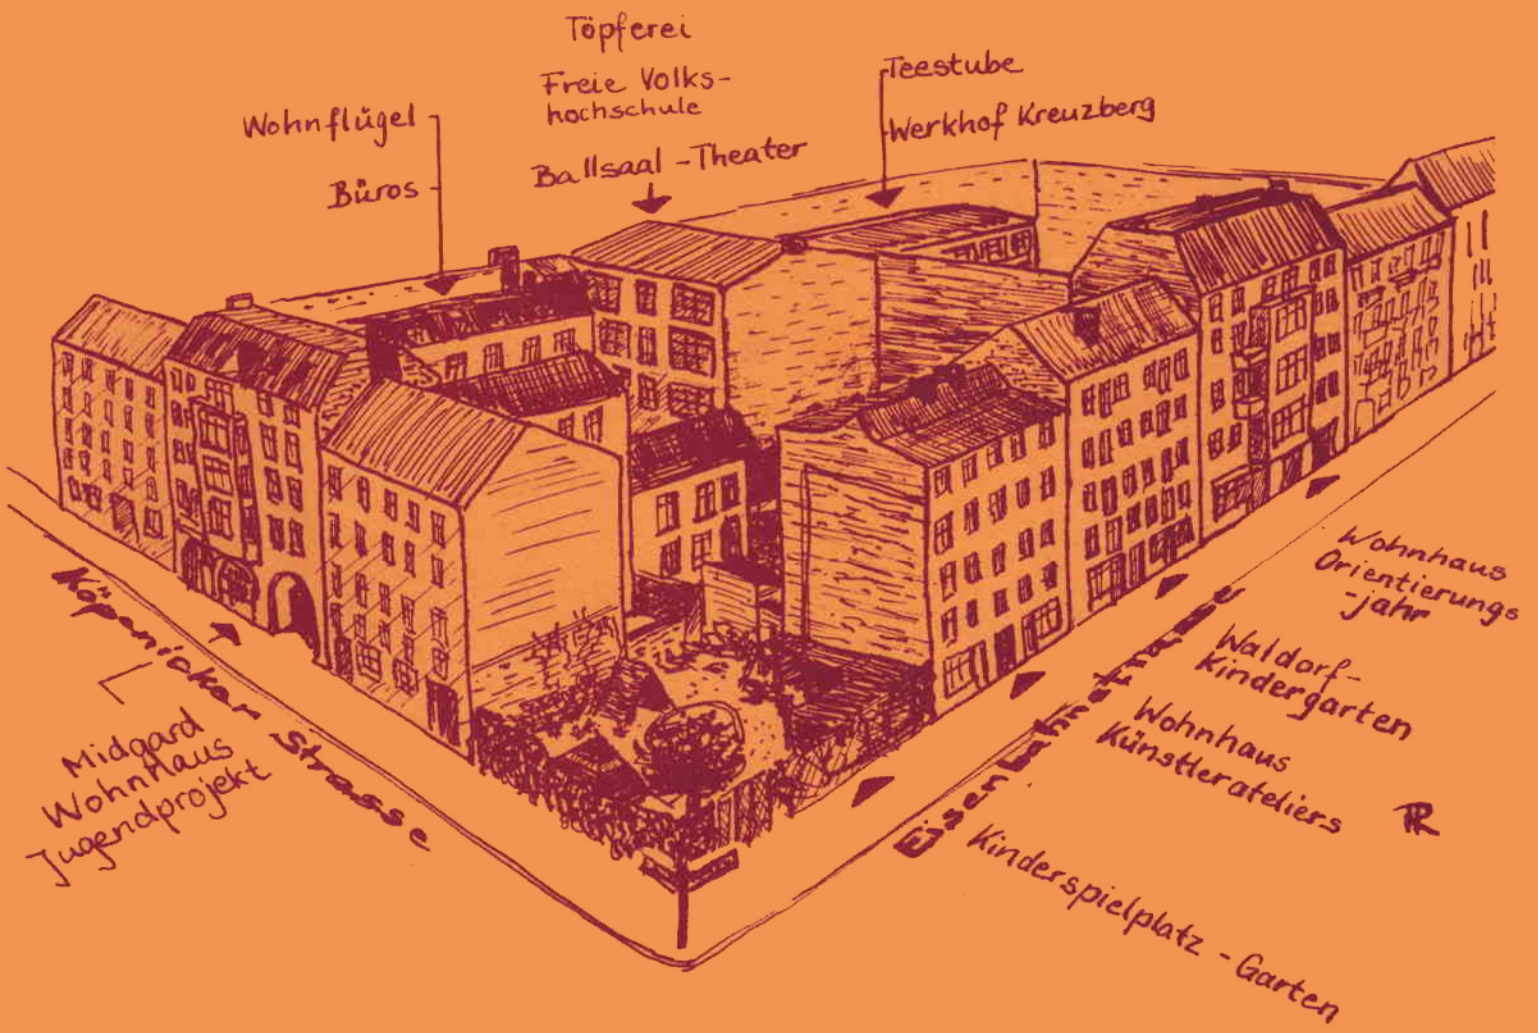 Töpferei
Freie Volks-
hochschule
Ballsaal-Theater
Teestube
Werkhof Kreuzberg
Wohnflügel
Büros
Köpenicker Strasse
Midgard
Wohnhaus
Jugendprojekt
Eisenbahnstrasse
Wohnhaus
Orientierungs
-jahr
Waldorf-
Kindergarten
Wohnhaus
Künstlerateliers
Kinderspielplatz - Garten